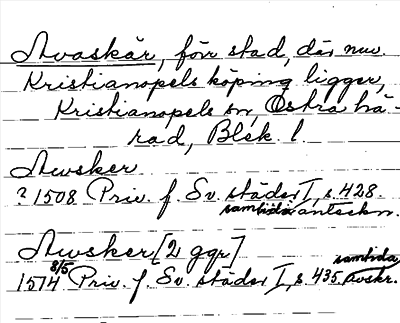 Avaskär, förr stad, där nuv.
Kristianopels köping ligger,
Kristianopels sn, Östra hä-
rad, Blek. l.
Awsker
? 1508 Priv. f. Sv. städer I, s. 428.
samtida anteckn.
Awsker [2 ggr]
1514 8/5 Priv. f. Sv. städer I, s. 435. samtida avskr.